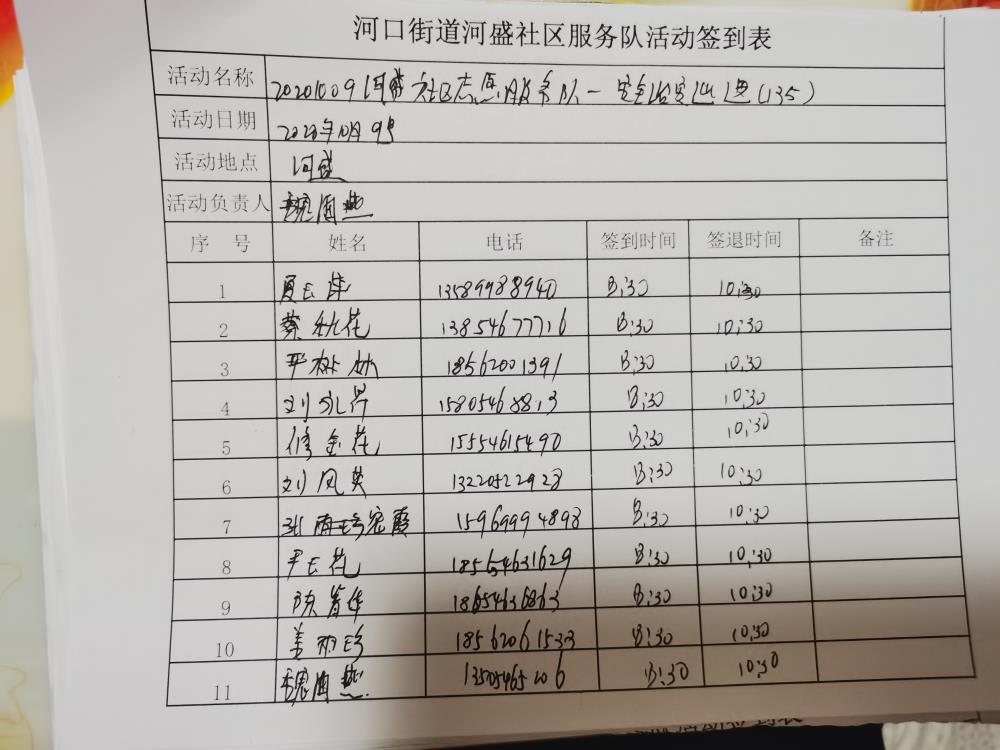 河口街道河盛社区服务队活动签到表
活动名称 20201009河盛社区志愿服务队一安全治安巡逻(135)
活动日期 2020年10月9号
活动地点 河盛
活动负责人 魏酒燕
序 号 姓名 电话 签到时间 签退时间 备注
1 13589988940 8:30 10:30
2 蔡秋花 13854677716 8:30 10:30
3 18562001391 8:30 10:30
4 15805468813 8:30 10:30
5 修金花 15554615490 8:30 10:30
6 刘凤英 13220522928 8:30 10:30
7 15969994898 8:30 10:30
8 尹玉花 185654631629 8:30 10:30
9 18654636863 8:30 10:30
10 姜丽珍 18562061533 8:30 10:30
11 13505465206 8:30 10:30